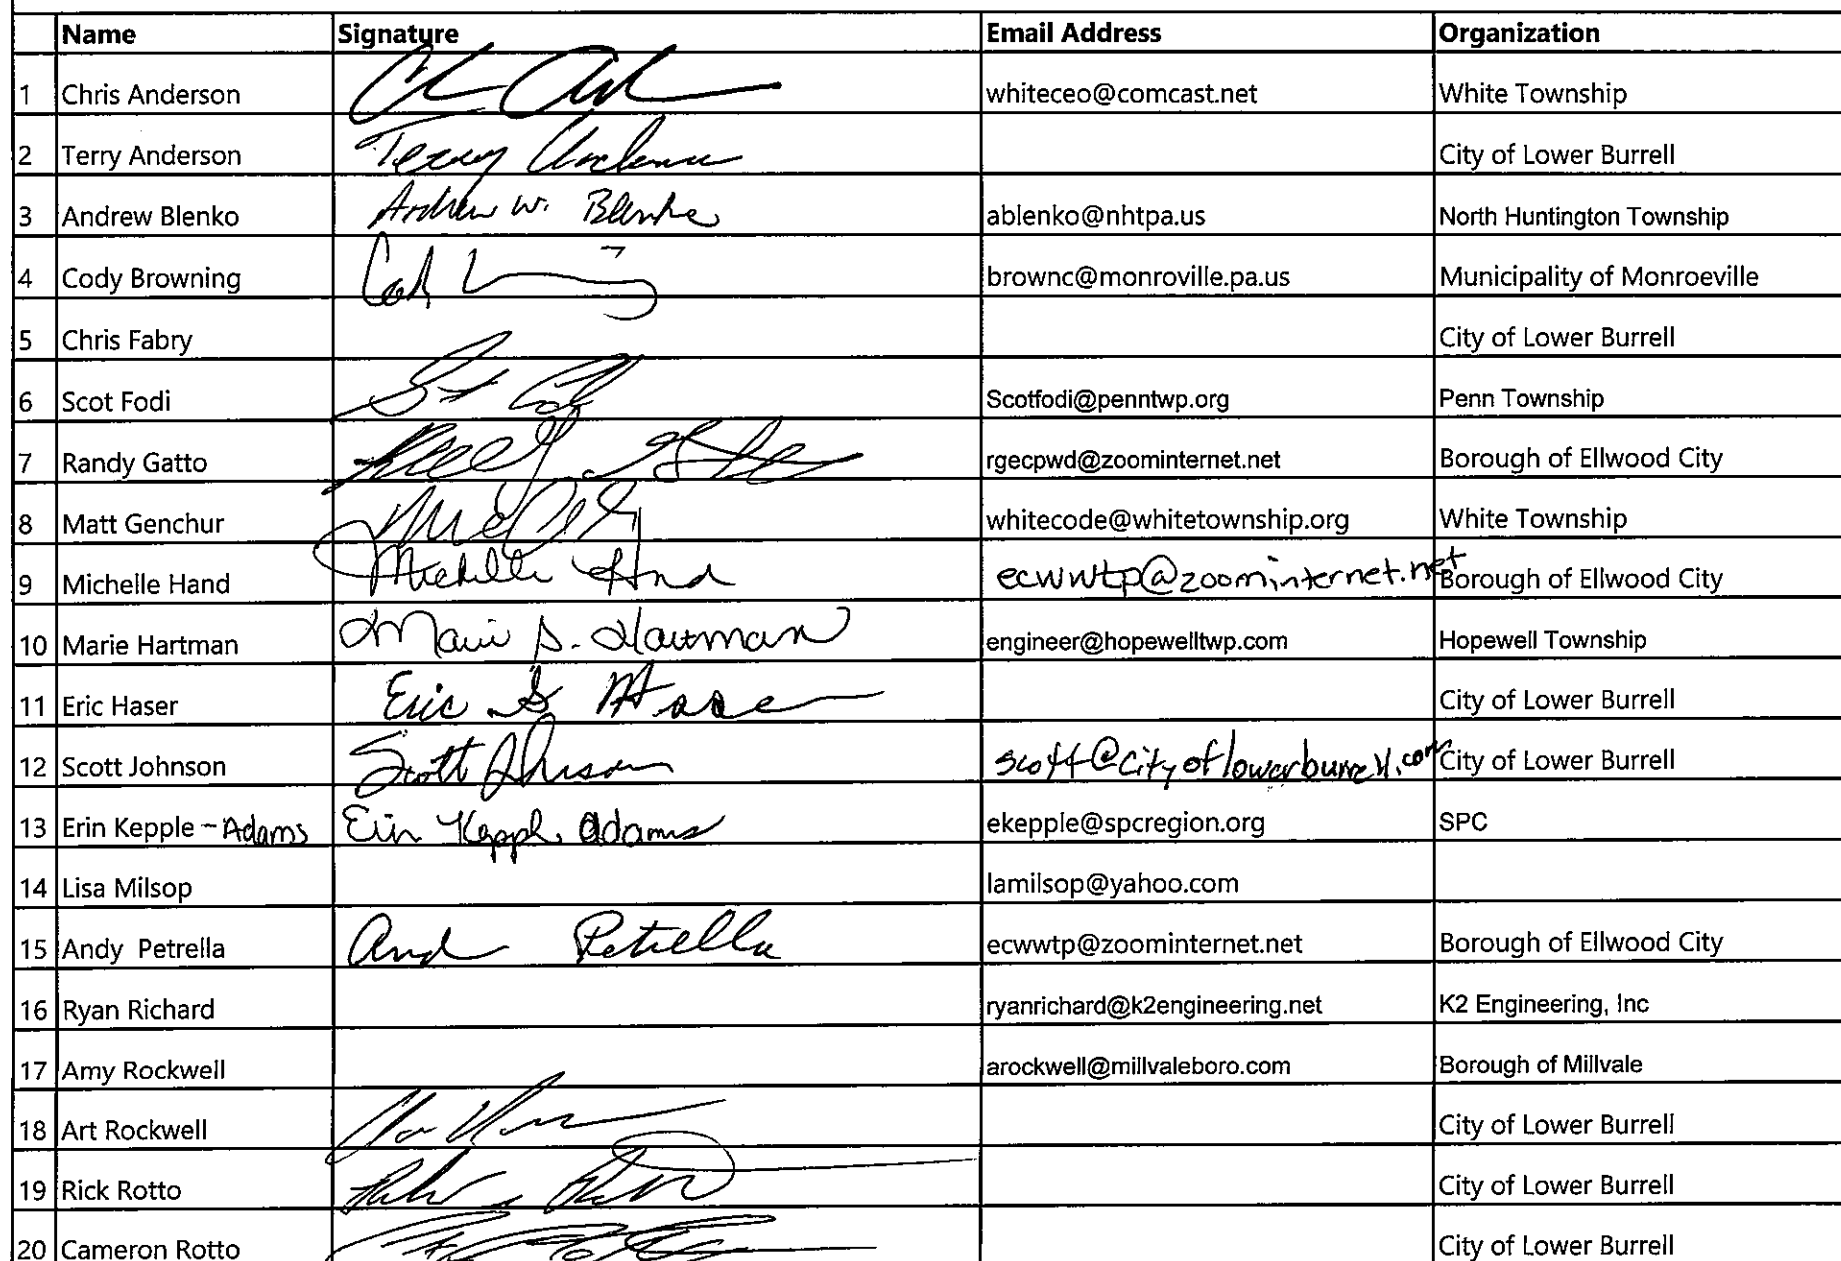 Name Signature Email Address Organization
1 Chris Anderson whiteceo@comcast.net White Township
2 Terry Anderson Terry Anderson City of Lower Burrell
3 Andrew Blenko Andrew W. Blenko ablenko@nhtpa.us North Huntington Township
4 Cody Browning brownc@monroville.pa.us Municipality of Monroeville
5 Chris Fabry City of Lower Burrell
6 Scot Fodi Scotfodi@penntwp.org Penn Township
7 Randy Gatto rgecpwd@zoominternet.net Borough of Ellwood City
8 Matt Genchur whitecode@whitetownship.org White Township
9 Michelle Hand Michelle Hand ecwwtp@zoominternet.net Borough of Ellwood City
10 Marie Hartman Marie S. Hartman engineer@hopewelltwp.com Hopewell Township
11 Eric Haser Eric City of Lower Burrell
12 Scott Johnson Scott Johnson scott@cityoflowerburrell.com City of Lower Burrell
13 Erin Kepple - Adams Erin Kepple Adams ekepple@spcregion.org SPC
14 Lisa Milsop lamilsop@yahoo.com
15 Andy Petrella And Petrella ecwwtp@zoominternet.net Borough of Ellwood City
16 Ryan Richard ryanrichard@k2engineering.net K2 Engineering, Inc
17 Amy Rockwell arockwell@millvaleboro.com Borough of Millvale
18 Art Rockwell City of Lower Burrell
19 Rick Rotto City of Lower Burrell
20 Cameron Rotto City of Lower Burrell